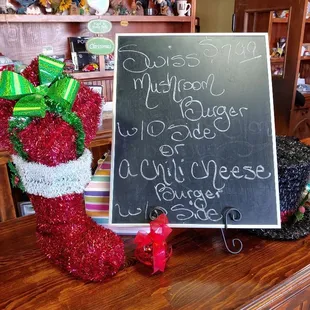 Swiss $7.99
Mushroom
Burger
w/① Side
or
a Chili Cheese
Burger
w/① Side